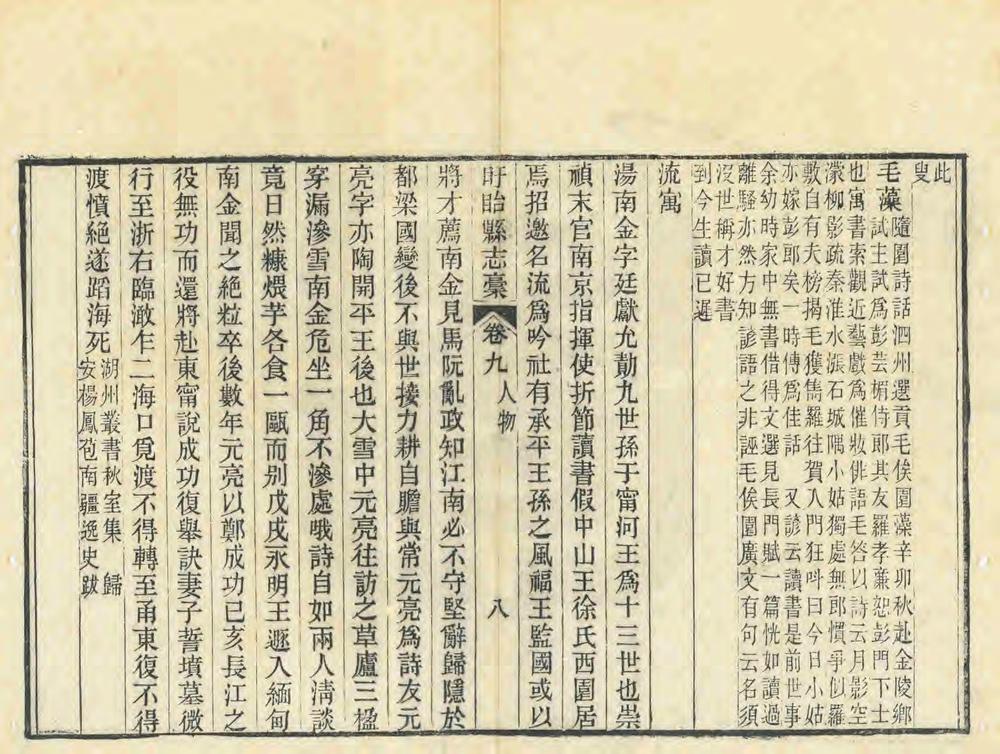 此
叟
毛藻 隨園詩話泗州選貢毛俟園藻辛卯秋赴金陵鄉
試主試爲彭芸楣侍郎其友羅孝亷恕彭門下士
也寓書索觀近藝戲爲催妝俳語毛答以詩云月影空
濛柳影疏秦淮水漲石城隅小姑獨處無郎慣爭似羅
敷自有夫榜揭毛獲雋羅往賀入門狂呌曰今日小姑
亦嫁彭郎矣一時傳爲佳話　又諺云讀書是前世事
余幼時家中無書借得文選見長門賦一篇恍如讀過
離騷亦然方知諺語之非誣毛俟園廣文有句云名須
沒世稱才好書
到今生讀已遲
流寓
湯南金字廷獻允勣九世孫于甯河王爲十三世也崇
禎末官南京指揮使折節讀書假中山王徐氏西園居
焉招邀名流爲吟社有承平王孫之風福王監國或以
盱眙縣志藁 卷九 人物 八
將才薦南金見馬阮亂政知江南必不守堅辭歸隱於
都梁國變後不與世接力耕自贍與常元亮爲詩友元
亮字亦陶開平王後也大雪中元亮往訪之草廬三楹
穿漏滲雪南金危坐一角不滲處哦詩自如兩人淸談
竟日然糠煨芋各食一甌而别戊戌永明王遯入緬甸
南金聞之絶粒卒後數年元亮以鄭成功已亥長江之
役無功而還將赴東甯說成功復舉訣妻子誓墳墓微
行至浙右臨澉乍二海口覓渡不得轉至甬東復不得
渡憤絕遂蹈海死 湖州叢書秋室集　歸
安楊鳳苞南疆逸史跋